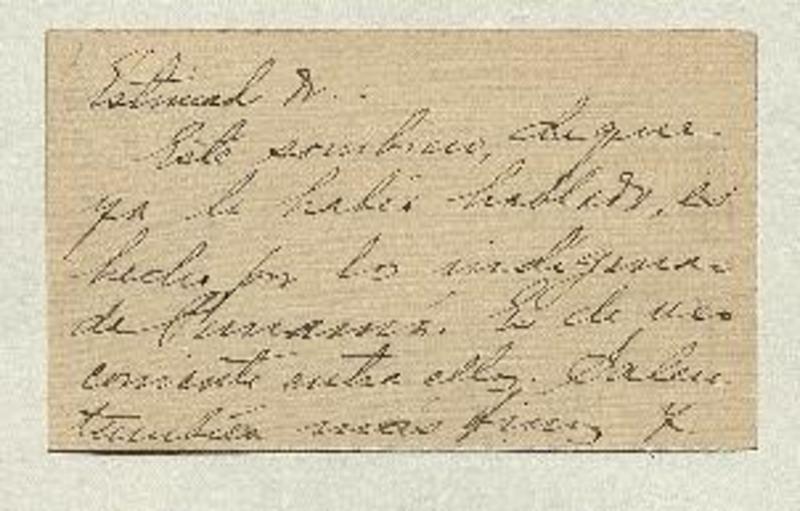 Estimad Dr..
Este sombrero, de que
ya le había hablado, es
hecho por los indígenas
de Panamá. Es de uso
corriente entre ellos. Salen
también más finos y